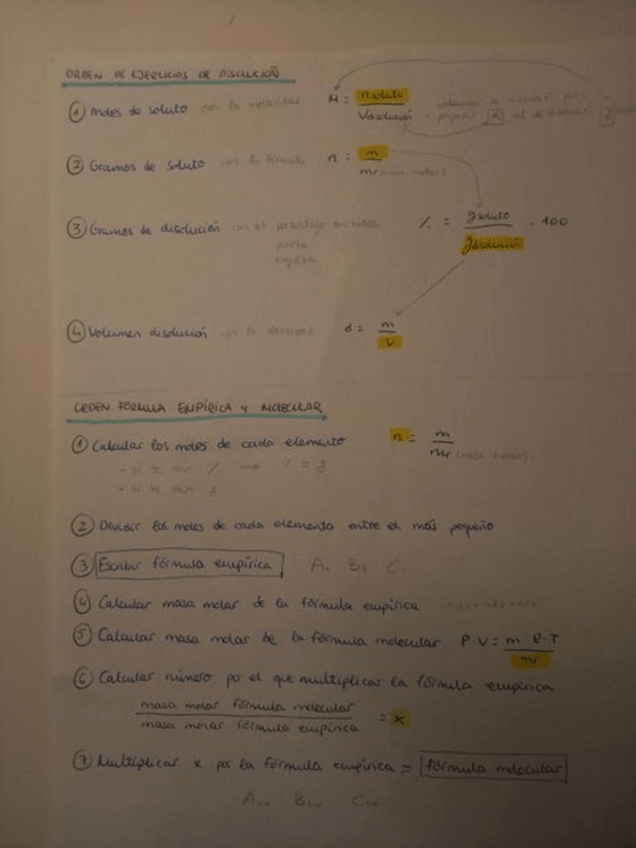 ORDEN DE EJERCICIOS DE DISOLUCIÓN
① Moles de soluto con la molaridad M = nsoluto / Vdisolución
② Gramos de soluto con la fórmula n = m / mr (masa molar)
③ Gramos de disolución con el porcentaje en masa % = gsoluto / gdisolución · 100
④ Volumen disolución con la densidad d = m / V
ORDEN FÓRMULA EMPÍRICA Y MOLECULAR
① Calcular los moles de cada elemento n = m / mr (masa molar)
- si te dan % → % = g
- si te dan g
② Dividir los moles de cada elemento entre el más pequeño
③ Escribir fórmula empírica A. B. C.
④ Calcular masa molar de la fórmula empírica
⑤ Calcular masa molar de la fórmula molecular P·V = m·R·T / mr
⑥ Calcular número por el que multiplicar la fórmula empírica
masa molar fórmula molecular / masa molar fórmula empírica = x
⑦ Multiplicar x por la fórmula empírica = fórmula molecular
A.. B.. C..